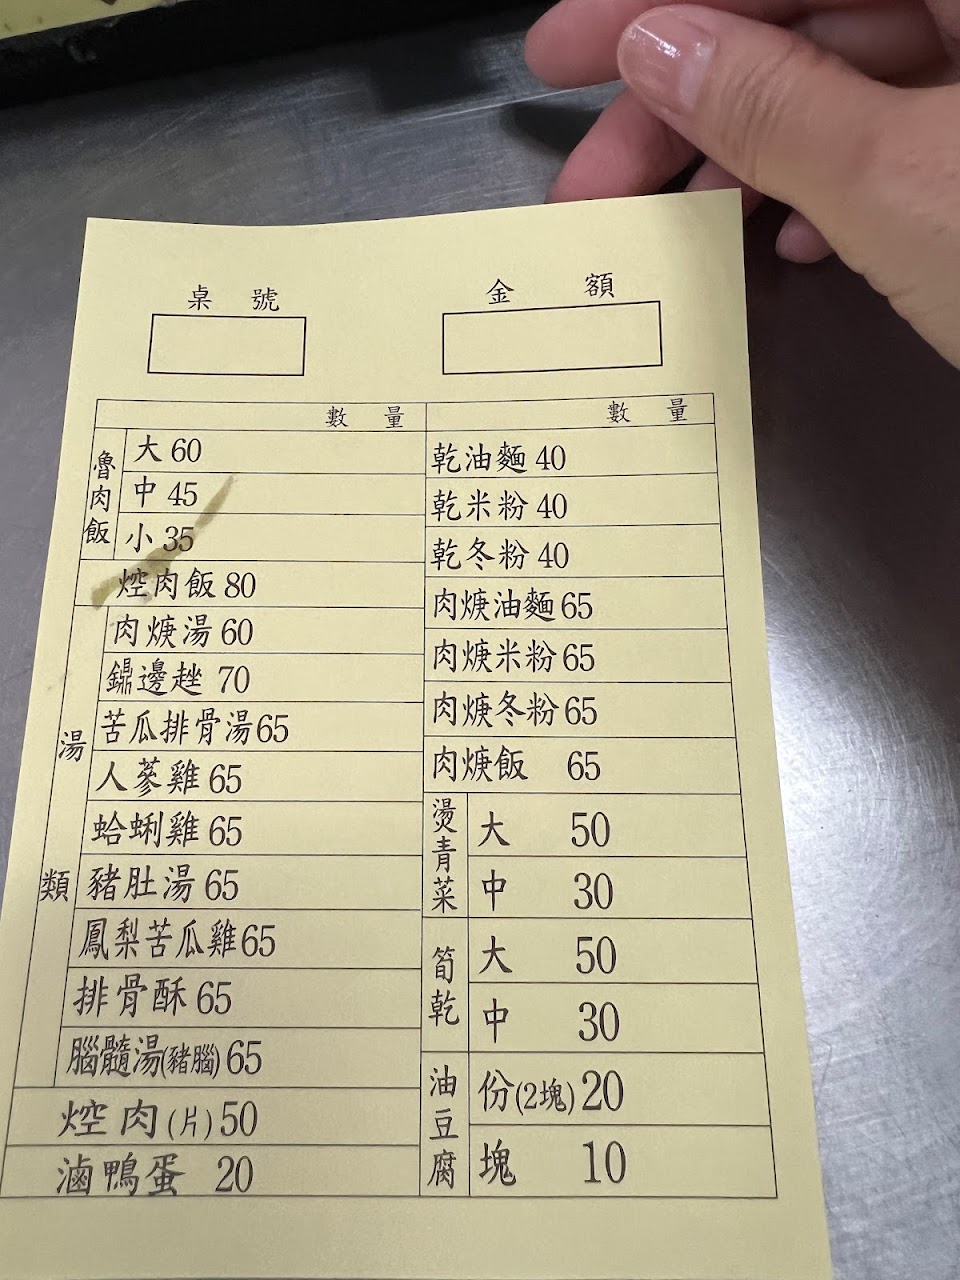 桌 號
金 額
數 量
魯肉飯
大 60
中 45
小 35
焢肉飯 80
湯類
肉焿湯 60
鼎邊趖 70
苦瓜排骨湯 65
人蔘雞 65
蛤蜊雞 65
豬肚湯 65
鳳梨苦瓜雞 65
排骨酥 65
腦髓湯(豬腦) 65
焢肉(片) 50
滷鴨蛋 20
數 量
乾油麵 40
乾米粉 40
乾冬粉 40
肉焿油麵 65
肉焿米粉 65
肉焿冬粉 65
肉焿飯 65
燙青菜
大 50
中 30
筍乾
大 50
中 30
油豆腐
份(2塊) 20
塊 10